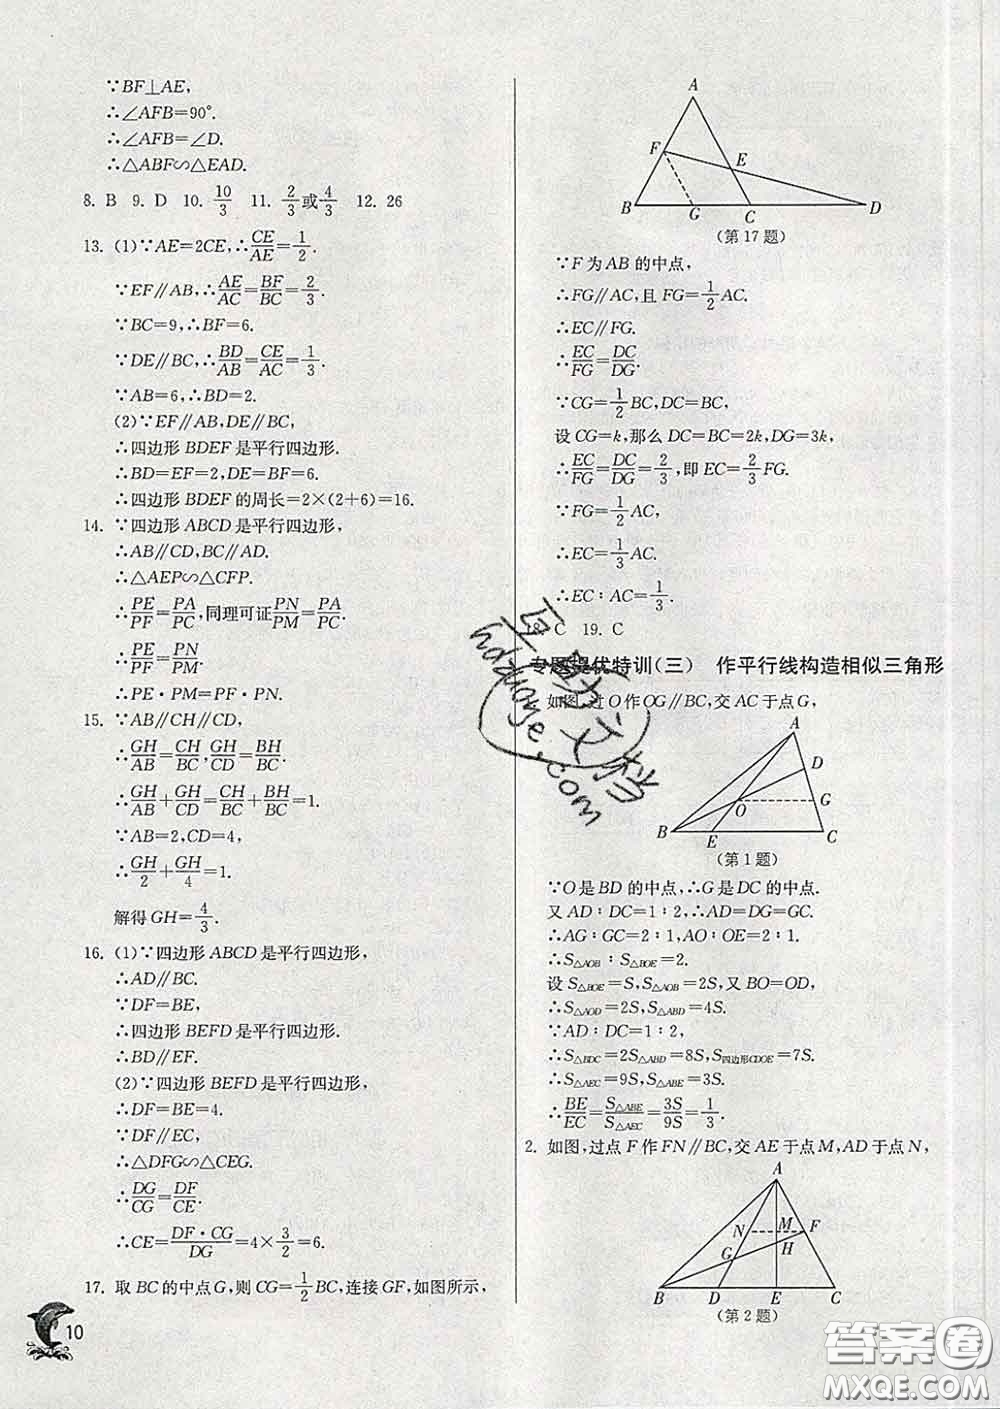 ∵BF⊥AE,
∴∠AFB=90°.
∴∠AFB=∠D.
∴△ABF∽△EAD.
8. B 9. D 10. 10/3 11. 2/3或4/3 12. 26
13. (1)∵AE=2CE,∴CE/AE=1/2.
∵EF∥AB,∴AE/AC=BF/BC=2/3.
∵BC=9,∴BF=6.
∵DE∥BC,∴BD/AB=CE/AC=1/3.
∵AB=6,∴BD=2.
(2)∵EF∥AB,DE∥BC,
∴四边形BDEF是平行四边形.
∴BD=EF=2,DE=BF=6.
∴四边形BDEF的周长=2×(2+6)=16.
14. ∵四边形ABCD是平行四边形,
∴AB∥CD,BC∥AD.
∴△AEP∽△CFP.
∴PE/PF=PA/PC,同理可证PN/PM=PA/PC.
∴PE/PF=PN/PM.
∴PE·PM=PF·PN.
15. ∵AB∥CH∥CD,
∴GH/AB=CH/BC,GH/CD=BH/BC.
∴GH/AB+GH/CD=CH/BC+BH/BC=1.
∵AB=2,CD=4,
∴GH/2+GH/4=1.
解得GH=4/3.
16. (1)∵四边形ABCD是平行四边形,
∴AD∥BC.
∵DF=BE,
∴四边形BEFD是平行四边形.
∴BD∥EF.
(2)∵四边形BEFD是平行四边形,
∴DF=BE=4.
∵DF∥EC,
∴△DFG∽△CEG.
∴DG/CG=DF/CE.
∴CE=DF·CG/DG=4×3/2=6.
17. 取BC的中点G,则CG=1/2BC,连接GF,如图所示,
10
A
F
E
B
G
C
D
(第17题)
∵F为AB的中点,
∴FG∥AC,且FG=1/2AC.
∴EC∥FG.
∴EC/FG=DC/DG.
∵CG=1/2BC,DC=BC,
设CG=k,那么DC=BC=2k,DG=3k,
∴EC/FG=DC/DG=2/3,即EC=2/3FG.
∵FG=1/2AC,
∴EC=1/3AC.
∴EC∶AC=1/3.
C 19. C
专题提优特训(三) 作平行线构造相似三角形
如图,过O作OG∥BC,交AC于点G,
A
D
O
G
B
E
C
(第1题)
∵O是BD的中点,∴G是DC的中点.
又AD∶DC=1∶2,∴AD=DG=GC.
∴AG∶GC=2∶1,AO∶OE=2∶1.
∴S△AOB∶S△BOE=2.
设S△BOE=S,S△AOB=2S,又BO=OD,
∴S△AOD=2S,S△ABD=4S.
∵AD∶DC=1∶2,
∴S△BDC=2S△ABD=8S,S四边形CDOE=7S.
∴S△AEC=9S,S△ABE=3S.
∴BE/EC=S△ABE/S△AEC=3S/9S=1/3.
2. 如图,过点F作FN∥BC,交AE于点M,AD于点N,
A
N
M
F
G
H
B
D
E
C
(第2题)
hdzuoye.com
答案圈
MXQE.COM